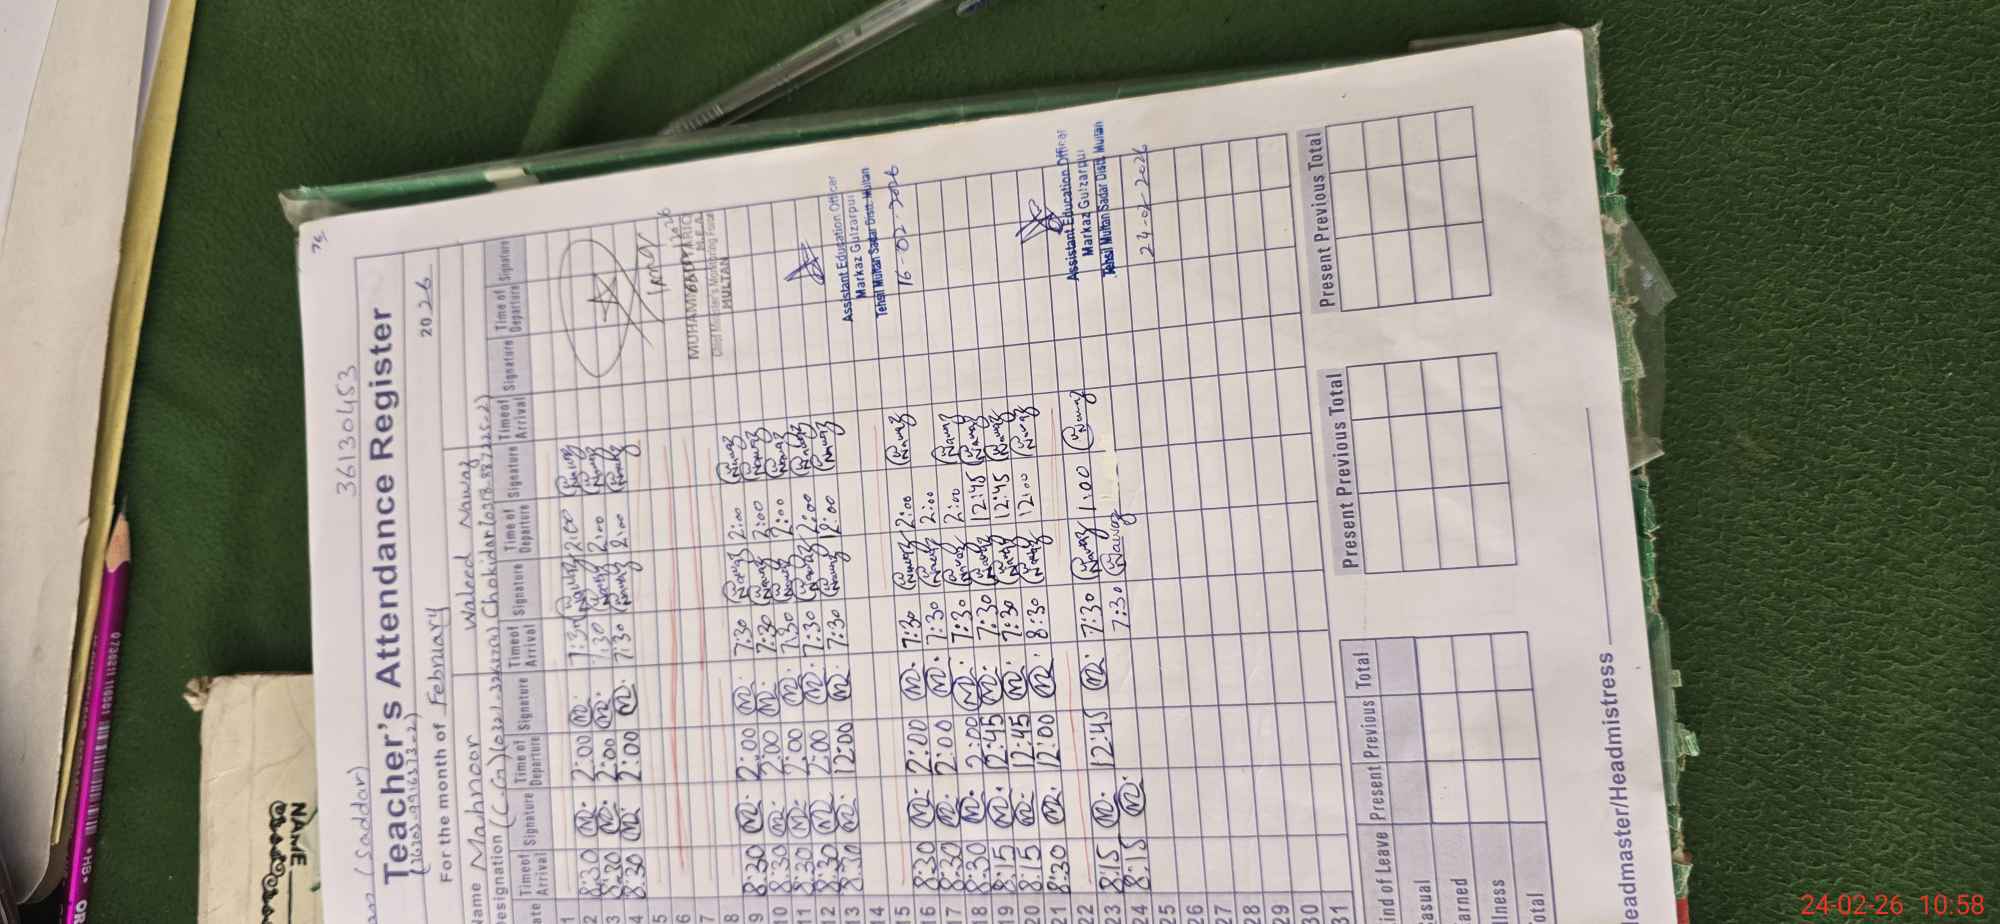 75
36130453
(Saddar)
Teacher's Attendance Register
For the month of February 2026
Name Mahnoor
Waleed Nawaz
Designation
Chokidar
Date Time of Arrival Signature Time of Departure Signature Time of Arrival Signature Time of Departure Signature Time of Arrival Signature Time of Departure Signature
1
2 8:30 2:00 7:30 Nawaz 2:00 Nawaz
3 8:30 2:00 7:30 Nawaz 2:00 Nawaz
4 8:30 2:00 7:30 Nawaz 2:00 Nawaz
5
6
7
8
9 8:30 2:00 7:30 Nawaz 2:00 Nawaz
10 8:30 2:00 7:30 Nawaz 2:00 Nawaz
11 8:30 2:00 7:30 Nawaz 2:00 Nawaz
12 8:30 2:00 7:30 Nawaz 2:00 Nawaz
13 8:30 12:00 7:30 Nawaz 12:00 Nawaz
14
15
16 8:30 2:00 7:30 Nawaz 2:00 Nawaz
17 8:30 2:00 7:30 Nawaz 2:00
18 8:30 2:00 7:30 Nawaz 2:00 Nawaz
19 8:15 12:45 7:30 Nawaz 12:45 Nawaz
20 8:15 12:45 7:30 Nawaz 12:45 Nawaz
21 8:30 12:00 8:30 Nawaz 12:00 Nawaz
22
23 8:15 12:45 7:30 Nawaz 1:00 Nawaz
24 8:15 7:30 Nawaz
25
26
27
28
29
30
31
MULTAN
Assistant Education Officer
Markaz Gulzarpur
Tehsil Multan Sadar Distt. Multan
16-02-2026
Assistant Education Officer
Markaz Gulzarpur
Tehsil Multan Sadar Distt. Multan
24-02-2026
Kind of Leave Present Previous Total Present Previous Total Present Previous Total
Casual
Earned
Illness
Total
Headmaster/Headmistress
NAME
24-02-26 10:58